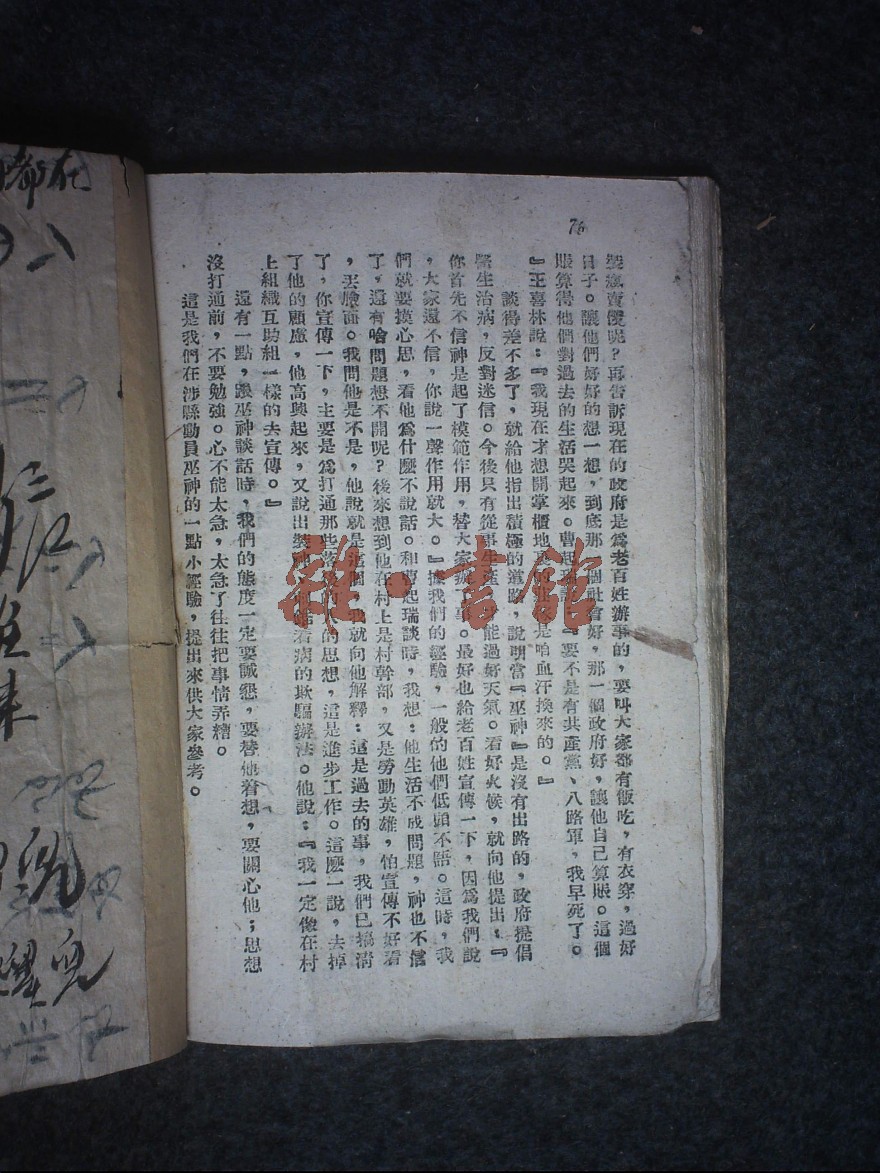 76
裝瘋賣儍呢？再告訴現在的政府是爲老百姓辦事的，要叫大家都有飯吃，有衣穿，過好
日子。讓他們好好的想一想，到底那一個社會好，那一個政府好，讓他自己算賬。這個
賬算得他們對過去的生活哭起來。曹起瑞說：『要不是有共產黨、八路軍，我早死了。
』王喜林說：『我現在才想開掌櫃地是咱血汗換來的。』
談得差不多了，就給他指出積極的道路，說明當『巫神』是沒有出路的，政府提倡
醫生治病，反對迷信。今後只有從事生產，能過好天氣。看好火候，就向他提出：『
你首先不信神是起了模範作用，替大家辦了事。最好也給老百姓宣傳一下，因爲我們說
，大家還不信，你說一聲作用就大。』據我們的經驗，一般的他們低頭不語。這時，我
們就要摸心思，看他爲什麽不說話。和曹起瑞談時，我想：他生活不成問題，神也不信
了，還有啥問題想不開呢？後來想到他在村上是村幹部，又是勞動英雄，怕宣傳不好看
，丟臉面。我問他是不是，他說就是這個，我就向他解釋：這是過去的事，我們已搞清
了，你宣傳一下，主要是爲打通那些落後的人的思想，這是進步工作。這麽一說，去掉
了他的顧慮，他高興起來，又說出裝神看病的欺騙辦法。他說：『我一定像在村
上組織互助組一樣的去宣傳。』
還有一點，跟巫神談話時，我們的態度一定要誠懇，要替他着想，要關心他；思想
沒打通前，不要勉強。心不能太急，太急了往往把事情弄糟。
這是我們在涉縣動員巫神的一點小經驗，提出來供大家參考。
雜·書館